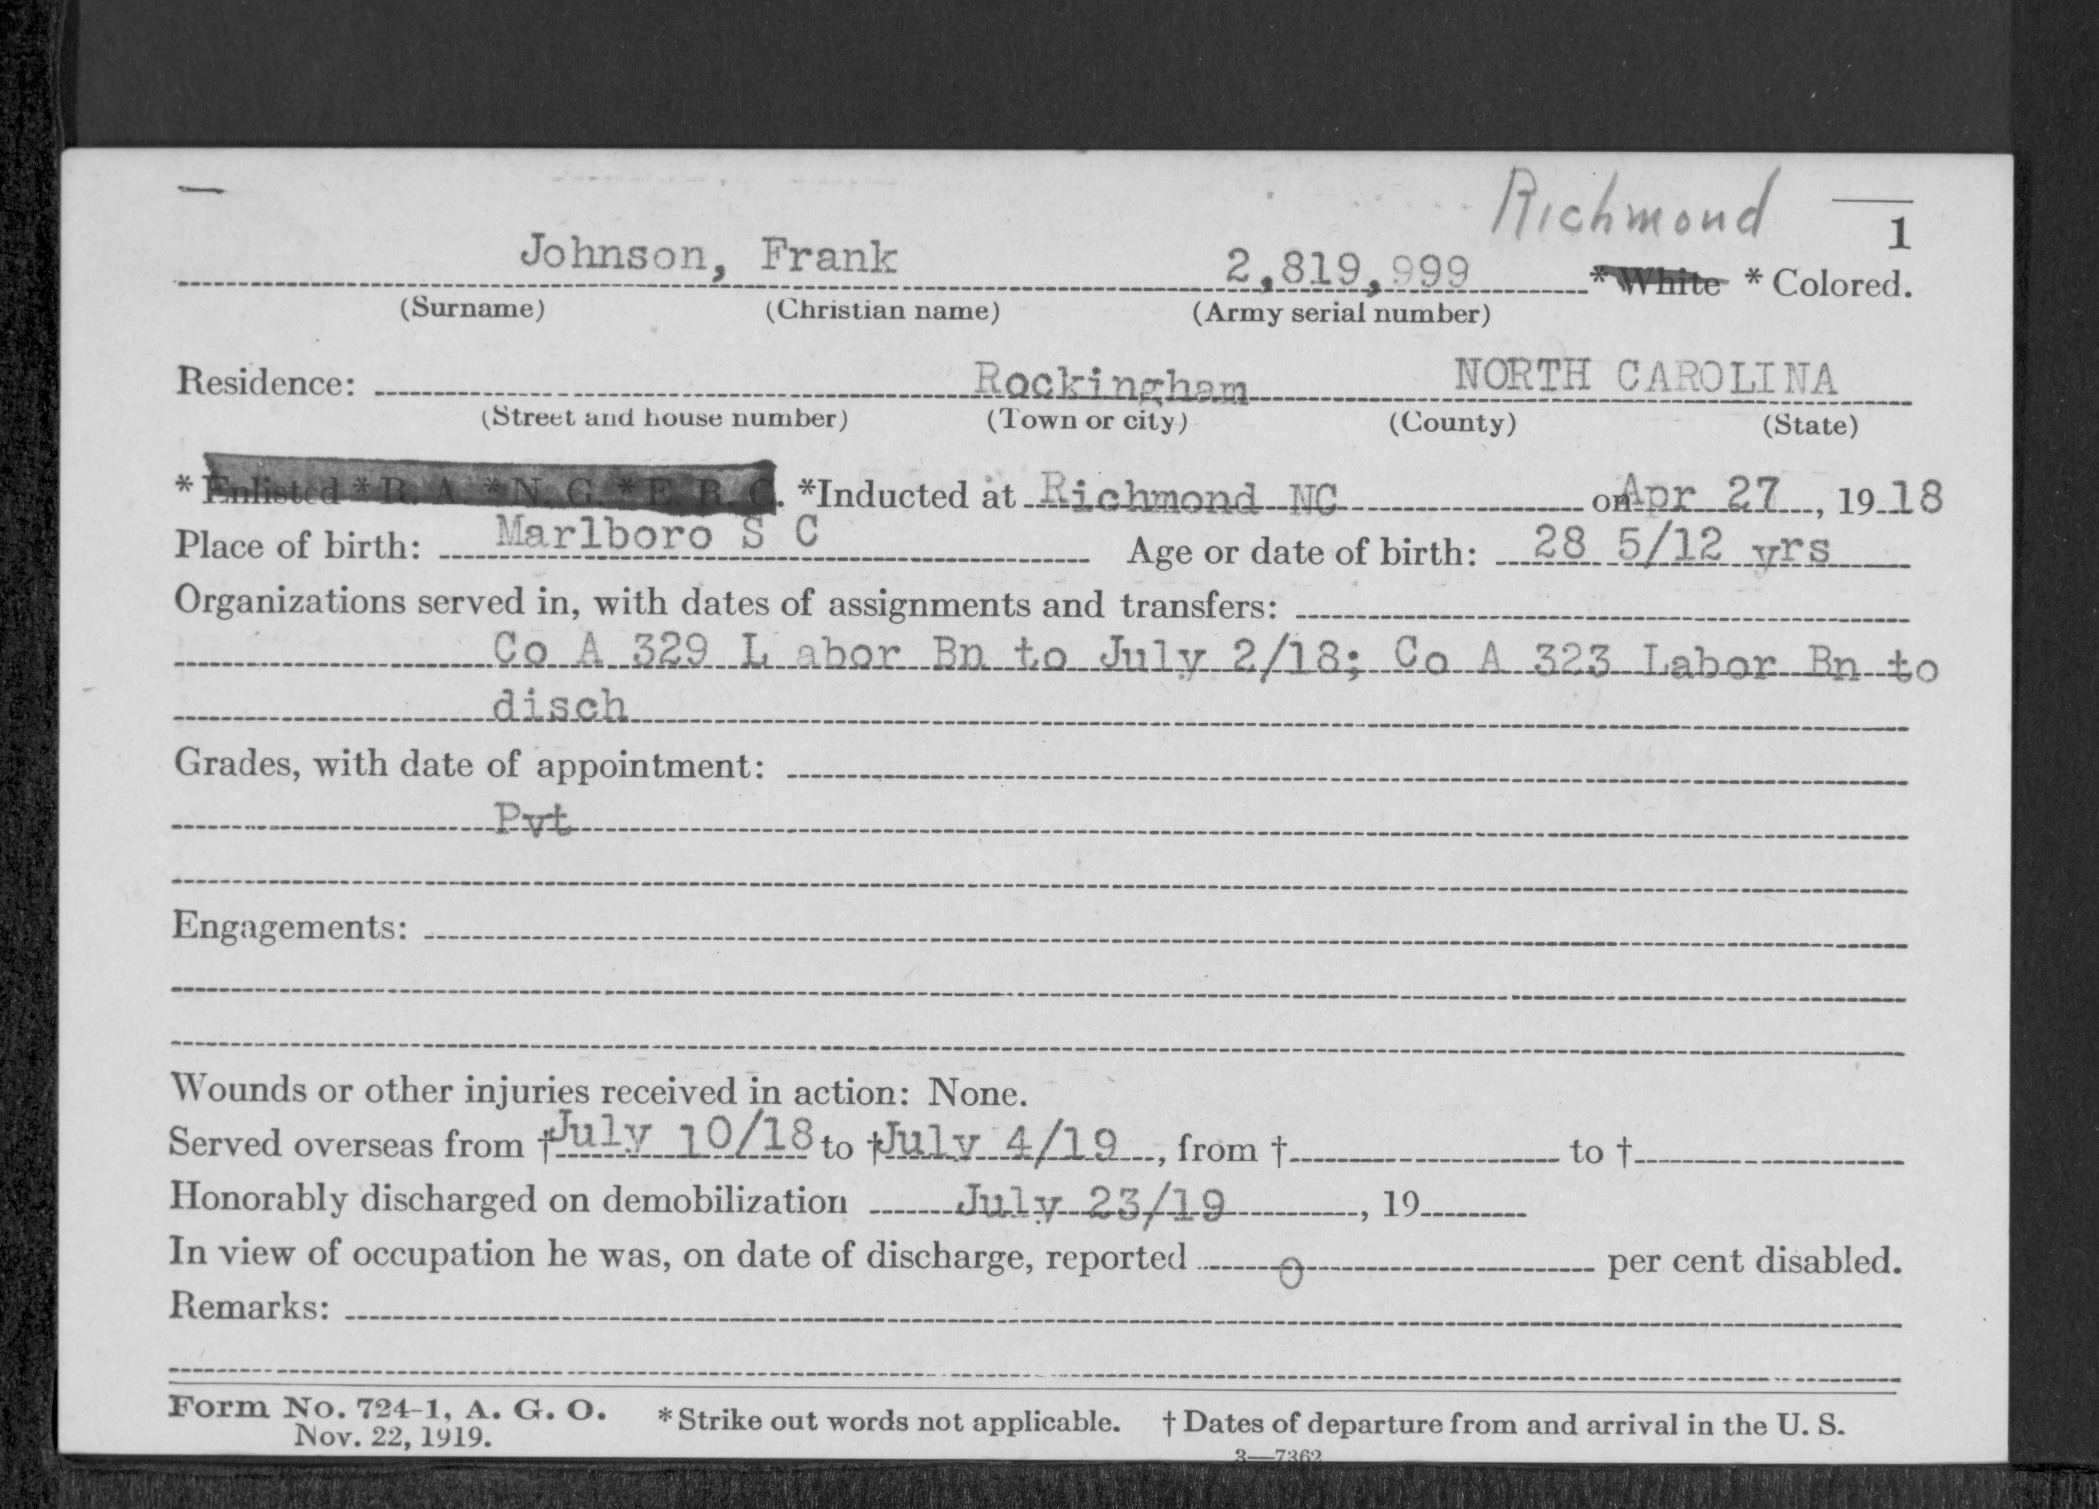 Richmond
1
Johnson, Frank 2,819,999 * White * Colored.
(Surname) (Christian name) (Army serial number)
Residence: Rockingham NORTH CAROLINA
(Street and house number) (Town or city) (County) (State)
* Enlisted * R. A. * N. G. * E. R. C. *Inducted at Richmond NC on Apr 27, 1918
Place of birth: Marlboro S C Age or date of birth: 28 5/12 yrs
Organizations served in, with dates of assignments and transfers:
Co A 329 L abor Bn to July 2/18; Co A 323 Labor Bn to
disch
Grades, with date of appointment:
Pvt
Engagements:
Wounds or other injuries received in action: None.
Served overseas from † July 10/18 to † July 4/19, from † to †
Honorably discharged on demobilization July 23/19, 19
In view of occupation he was, on date of discharge, reported 0 per cent disabled.
Remarks:
Form No. 724-1, A. G. O. * Strike out words not applicable. † Dates of departure from and arrival in the U. S.
Nov. 22, 1919.
3—7362